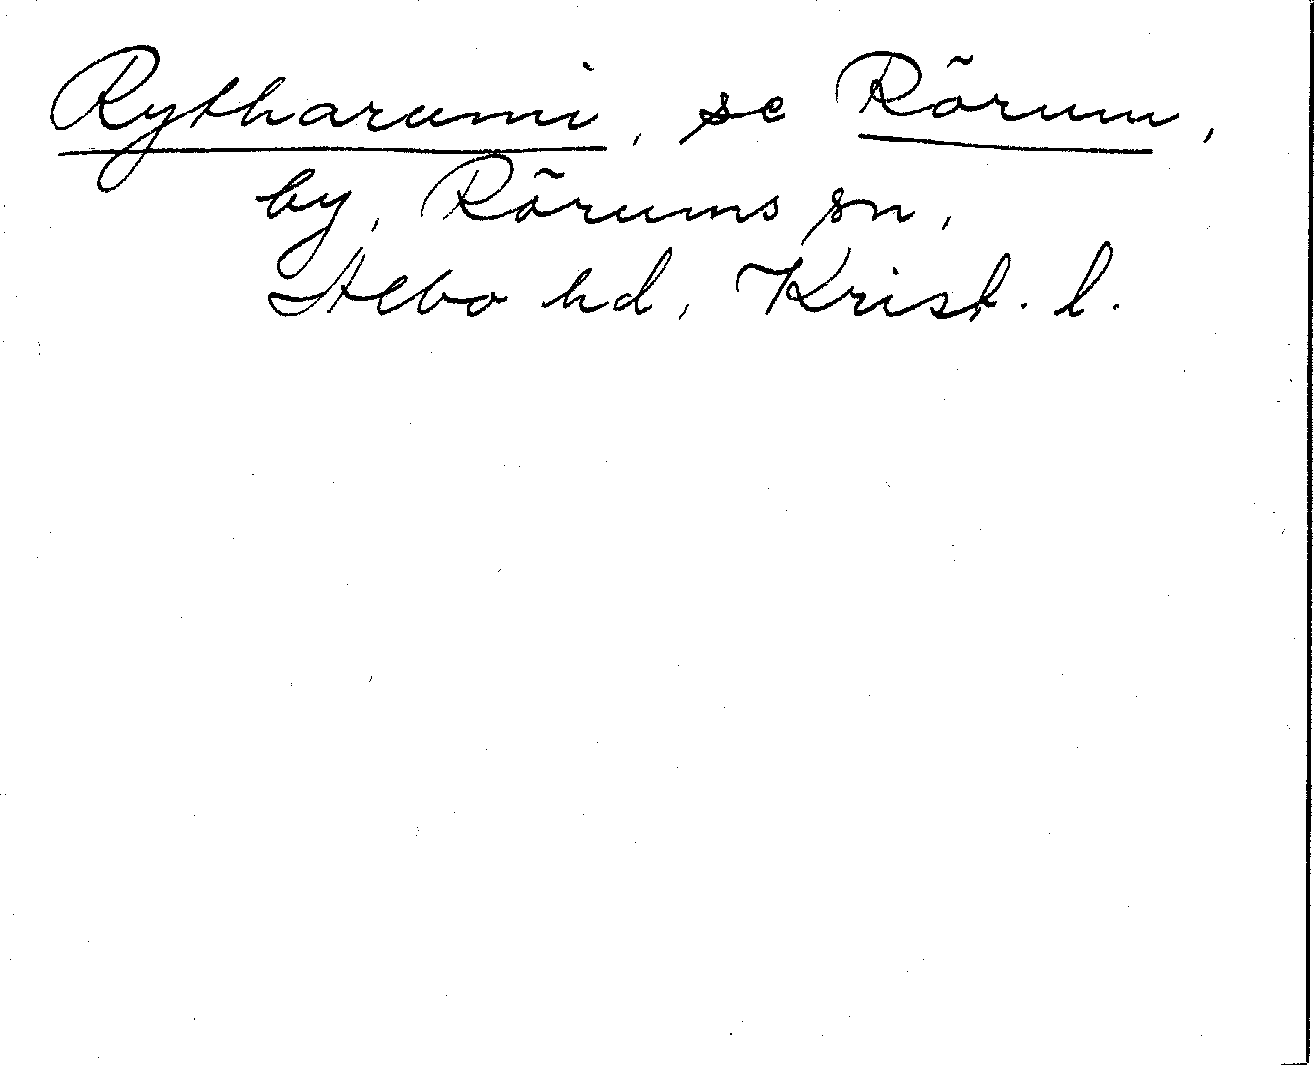 Rytharumi, se Rörum,
by, Rörums sn,
Albo hd, Krist. l.